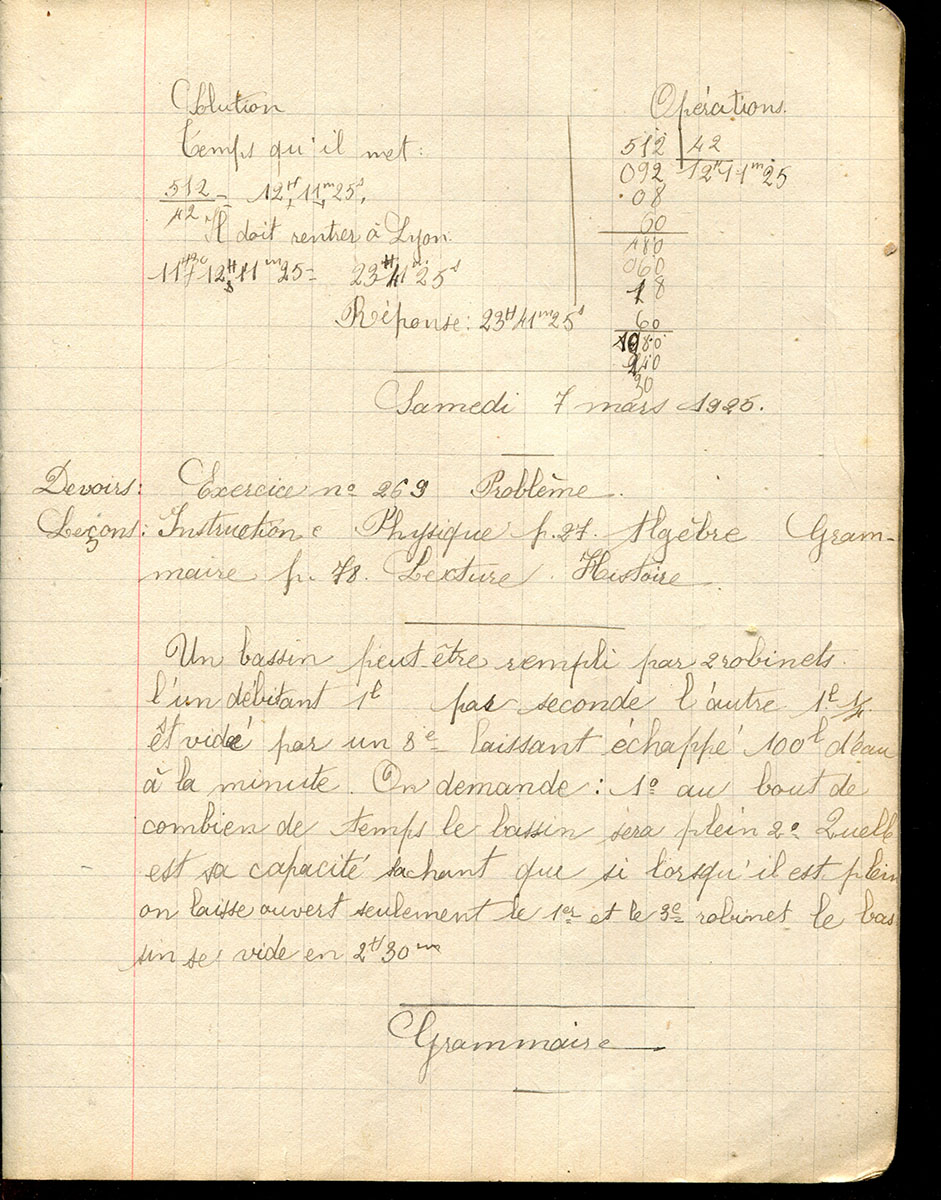 Solution
Temps qu'il met:
512/42 = 12H 11m 25s
Il doit rentrer à Lyon.
12H 11m 25 = 23H 41 25s
Réponse: 23H 41m 25s
Opérations.
512 | 42
092 12H 11m 25
08
60
480
060
18
60
1080
240
30
Samedi 7 mars 1925.
Devoirs: Exercice no 269 Problème.
Leçons: Instruction c Physique p. 27. Algèbre Gram-
maire p. 78. Lecture. Histoire
Un bassin peut-être rempli par 2 robinets.
l'un débitant 1l par seconde l'autre 1l 1/4.
Et vidé par un 3e laissant échappé 100l d'eau
à la minute. On demande: 1o au bout de
combien de temps le bassin sera plein 2o Quelle
est sa capacité sachant que si lorsqu'il est plein
on laisse ouvert seulement le 1er et le 3e robinet le bas
sin se vide en 2H 30m
Grammaire